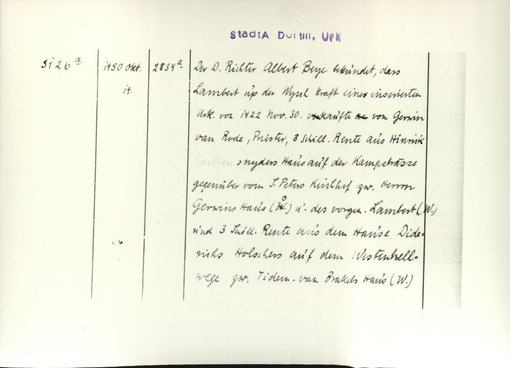 StadtA Dortm. Urk
3126 a
1450 Okt. 14.
2834 a
Der D. Richter Albert Beye bekündet, dass
Lambert up der Wysch kraft einer inserierten
Urk. von 1422 Nov. 30. kaufte von Gerwin
van Rode, Priester, 8 Schill. Rente aus Hinrik
snyders Haus auf der Kampstrasse
gegenüber vom S. Peters Kirchhof zw. Herrn
Gerwins Haus u. des vorgen. Lambert (W.)
und 3 Schill. Rente aus dem Hause Dide-
richs Holschers auf dem Westenhell-
wege zw. Tidem. van Brakels Haus (W.)